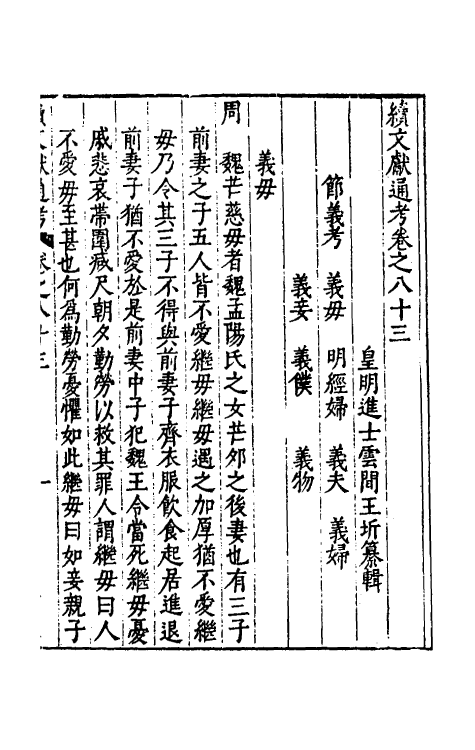 續文獻通考卷之八十三
皇明進士雲間王圻纂輯
節義考 義毋 明經婦 義夫 義婦
義妾 義僕 義物
義毋
周 魏芒慈毋者魏孟陽氏之女芒夘之後妻也有三子
前妻之子五人皆不愛繼毋繼毋遇之加厚猶不愛繼
毋乃令其三子不得與前妻子齊衣服飲食起居進退
前妻子猶不愛於是前妻中子犯魏王令當死繼毋憂
戚悲哀帶圍减尺朝夕勤勞以救其罪人謂繼毋曰人
不愛毋至甚也何為勤勞憂懼如此繼毋曰如妾親子
續文獻通考 卷之八十三 一